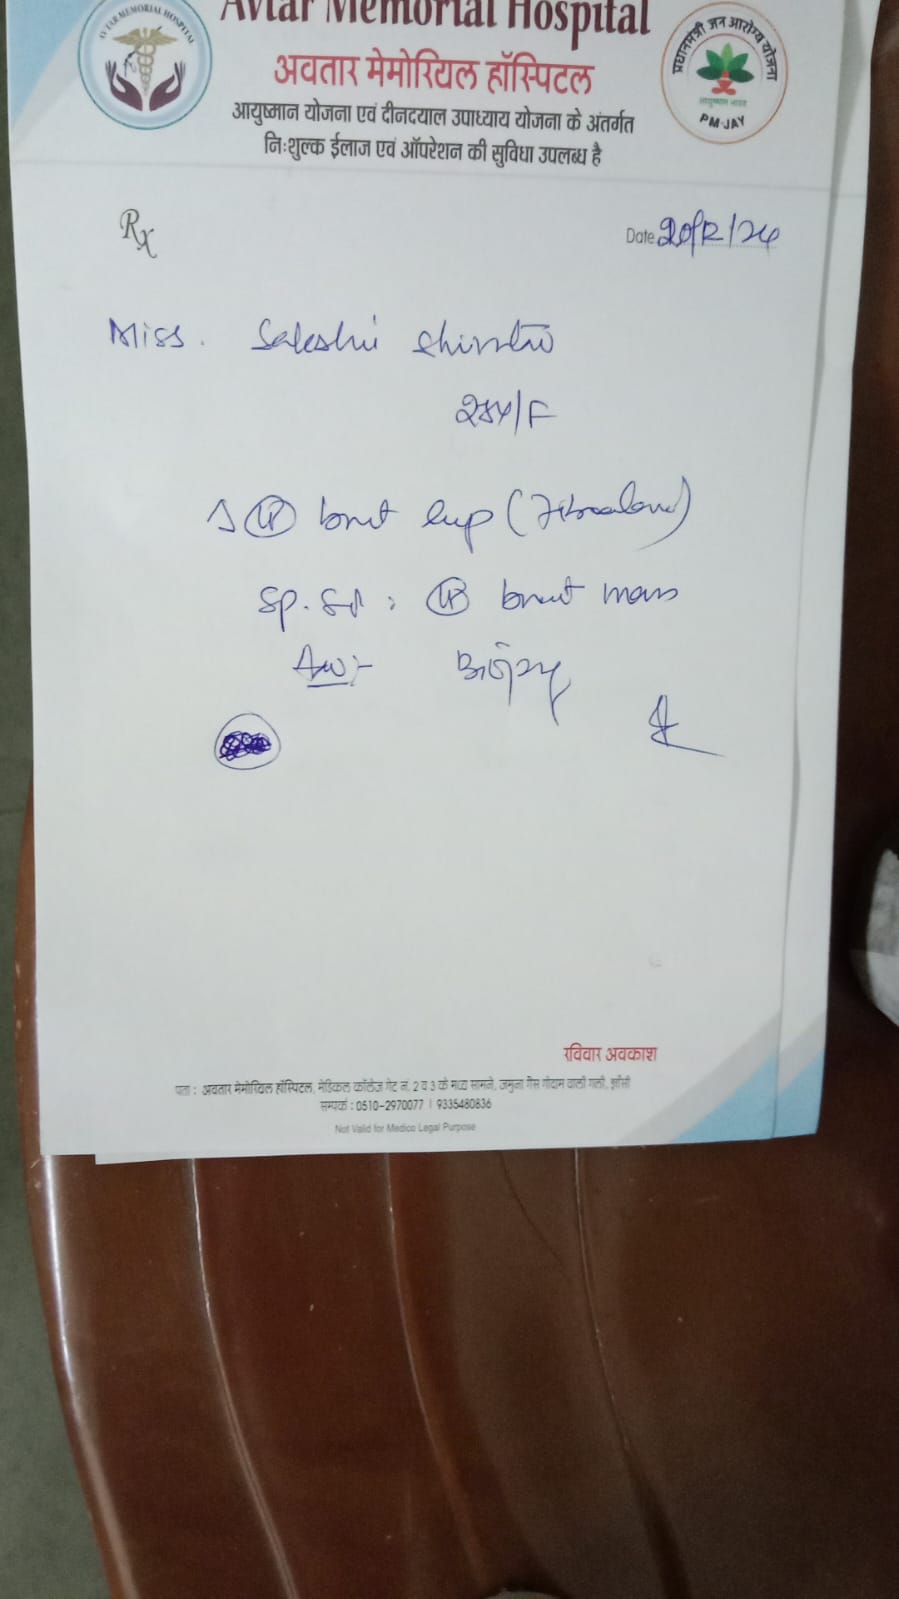 AVTAR MEMORIAL HOSPITAL
Avtar Memorial Hospital
अवतार मेमोरियल हॉस्पिटल
आयुष्मान योजना एवं दीनदयाल उपाध्याय योजना के अंतर्गत
निःशुल्क ईलाज एवं ऑपरेशन की सुविधा उपलब्ध है
प्रधानमंत्री जन आरोग्य योजना
आयुष्मान भारत
PM-JAY
Rx
Date 20/12/24
Miss. Sakshi
/F
breast lump (
Sp. breast mass
Adv:- Biopsy
रविवार अवकाश
पता : अवतार मेमोरियल हॉस्पिटल, मेडिकल कॉलेज गेट नं. 2 व 3 के मध्य सामने, जमुना गैस गोदाम वाली गली, झाँसी
सम्पर्क : 0510-2970077 | 9335480836
Not Valid for Medico Legal Purpose